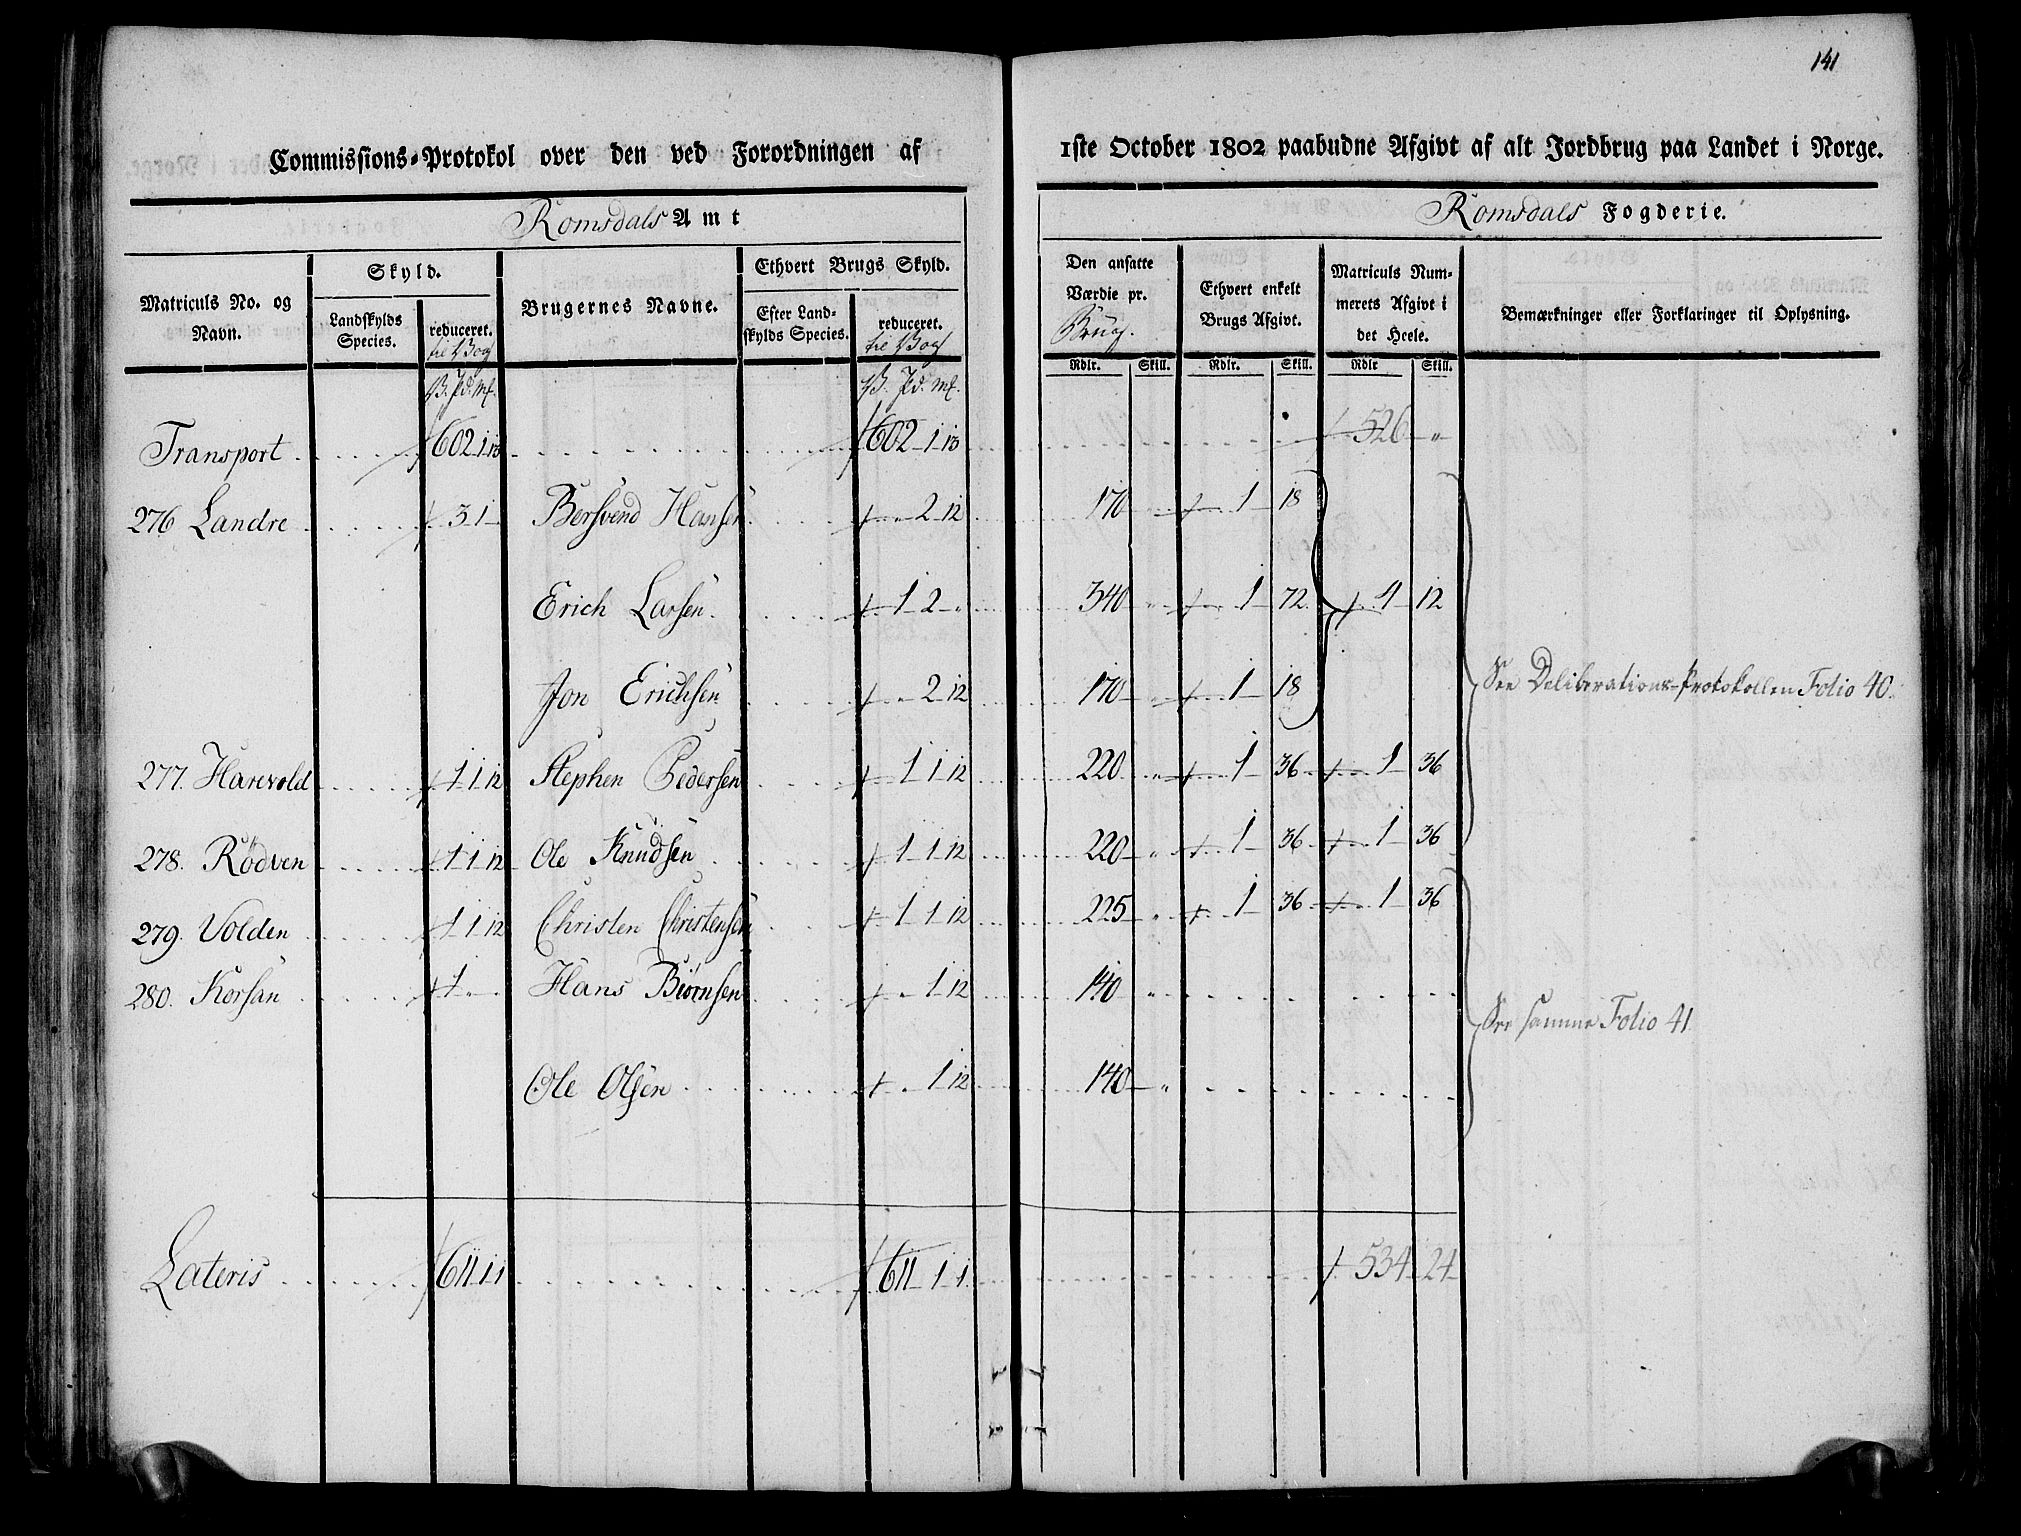 141
Commissions-Protokol over den ved Forordningen af 1ste October 1802 paabudne Afgivt af alt Jordbrug paa Landet i Norge.
Romsdals Amt
Romsdals Fogderie.
Matriculs No. og Navn.
Skyld.
Landskylds Species.
reduceret. til Vog
Brugernes Navne.
Ethvert Brugs Skyld.
Efter Landskylds Species.
reduceret. til Vog
Den ansatte Værdie pr. Brug.
Ethvert enkelt Brugs Afgivt.
Matriculs Nummerets Afgivt i det Heele.
Bemærkninger eller Forklaringer til Oplysning.
V. Pd. Mk. V. Pd. Mk. Rdlr. Skill. Rdlr. Skill. Rdlr Skill.
Transport 602 1 13 602 1 13 526 "
276 Landre 3 1 - Bersvend Hansen " 2 12 170 1 18
Erich Larsen 1 2 " 340 " 1 72 4 12
Jon Erichsen " 2 12 170 " 1 18
See Deliberations-Protokollen Folio 40.
277. Harevold 1 1 12 Stephen Pedersen 1 1 12 220 " 1 36 1 36
278. Rödven 1 1 12 Ole Knudsen 1 1 12 220 " 1 36 1 36
279. Volden 1 1 12 Christen Christensen 1 1 12 225 " 1 36 1 36
280. Korsan 1 " Hans Biörnsen " 1 12 140 "
See samme Folio 41
Ole Olsen " 1 12 140 "
Lateris 611 1 1 611 1 1 534 24